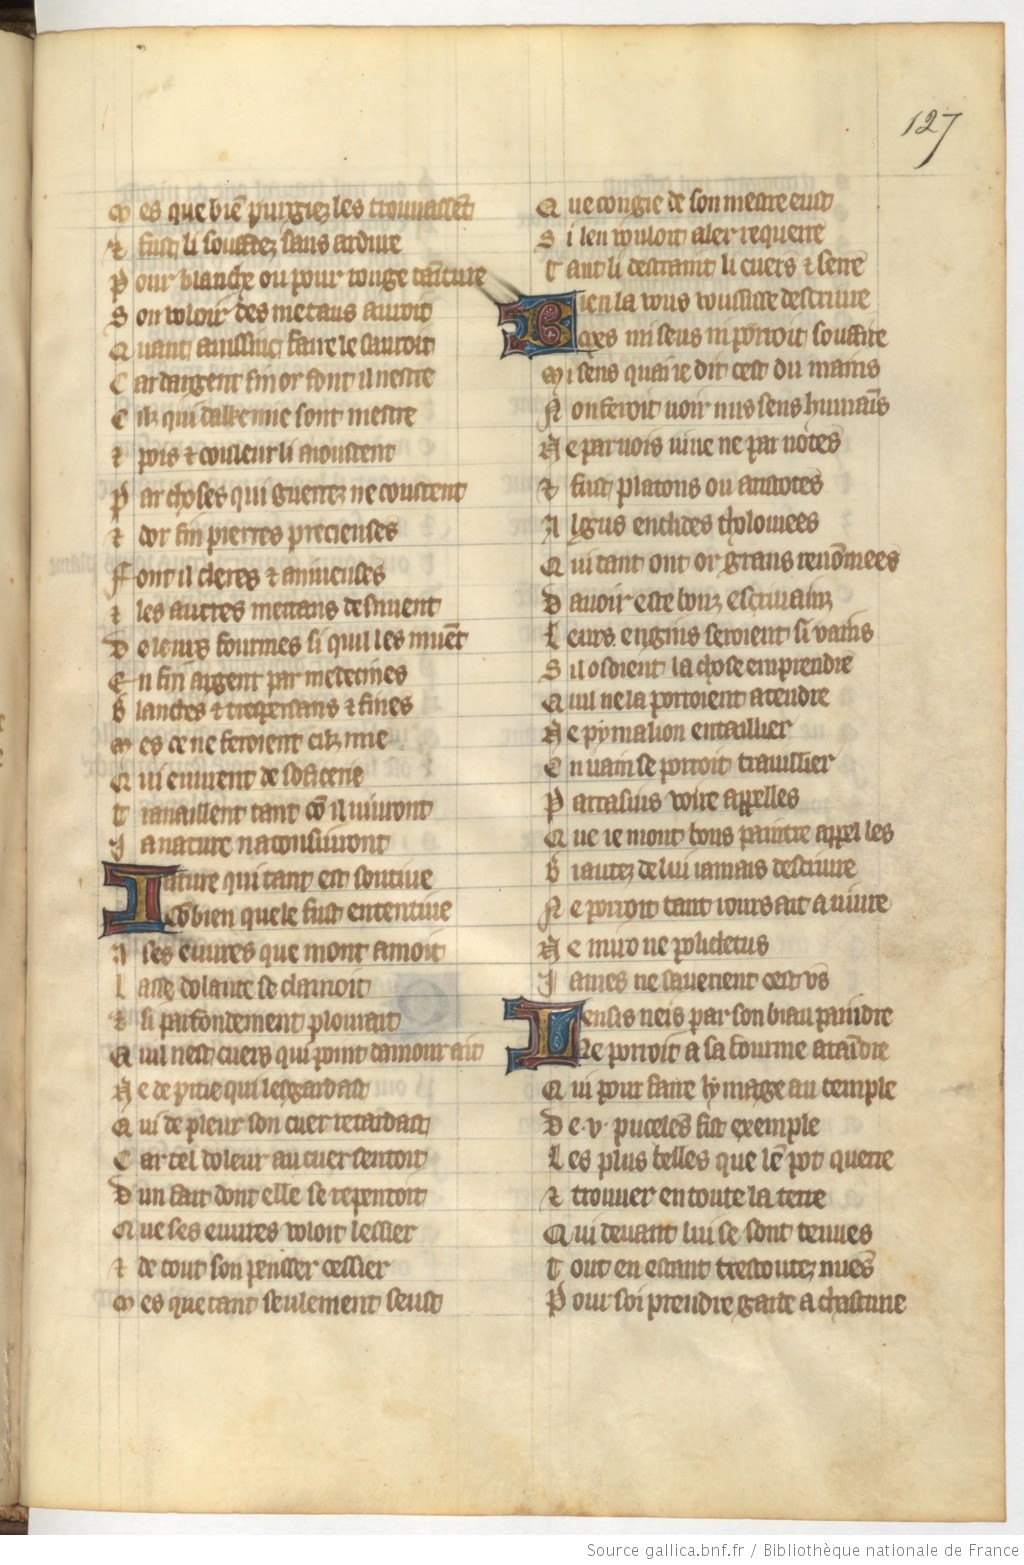 127
Mes que biē purgiez les trouvassēt
⁊ fust li souffrez sans ardure
Pour blanche ou pour rouge tainture
Son voloir des metaus auroit
Quant ainssinc faire le sauroit
Car dargent fin or font il nestre
Cilz qui dalkemie sont mestre
⁊ pois ⁊ couleur li aioustent
Par choses qui guerrez ne coustent
⁊ dor fin pierres precieuses
Font il cleres ⁊ anuieuses
⁊ les autres mettaus desnuent
De leurs fourmes si quil les muēt
En fin argent par medecines
Blanches ⁊ trespersans ⁊ fines
Mes ce ne feroient cilz mie
Qui euurent de sofficerie
Trauaillent tant cō il viuront
Ia nature naconsuiuront
Nature qui tant est soutiue
Cōbien quele fust ententiue
A ses euures que mont amoit
Lasse dolante se clamoit
⁊ si parfondement plourait
Quil nest cuers qui point damour ait
Ne de pitie qui lesgardast
Qui de pleur son cuer retardast
Car tel doleur au cuer sentoit
Dun fait dont elle se repentoit
Que ses euures voloit lessier
⁊ de tout son pensser cessier
Mes que tant seulement seust
Que congie de son mestre eust
Si len vouloit aler requerre
Tant li destraint li cuers ⁊ serre
Bien la vous voussisse descriure
Mes mi sens ni porroit souffire
Mi sens quai ie dit cest du mains
Non feroit voir nus sens humaīs
Ne par vois viue ne par notes
⁊ fust platons ou aristotes
Algus euclides tholomees
Qui tant ont or grans renōmees
Dauoir este bons escriuainz
Leurs engins seroient si vains
Sil osoient la chose emprendre
Quil ne la porroient atendre
Ne pymalion entaillier
En vain se porroit trauillier
Parrasius voire appelles
Que ie mont bons paintre appelles
Biautez de lui iamais descriure
Ne porroit tant iours ait a viure
Ne miro ne policletus
Iames ne sauerient cest vs
Zensis neis par son biau paindre
Ne porroit a sa fourme ataīdre
Qui pour faire lymage au temple
De .v. puceles fist exemple
Les plus belles que lē pot querre
⁊ trouuer en toute la terre
Qui deuant lui se sont tenues
Tout en estant trestoutez nues
Pour soi prendre garde a chascune
Source gallica.bnf.fr / Bibliothèque nationale de France